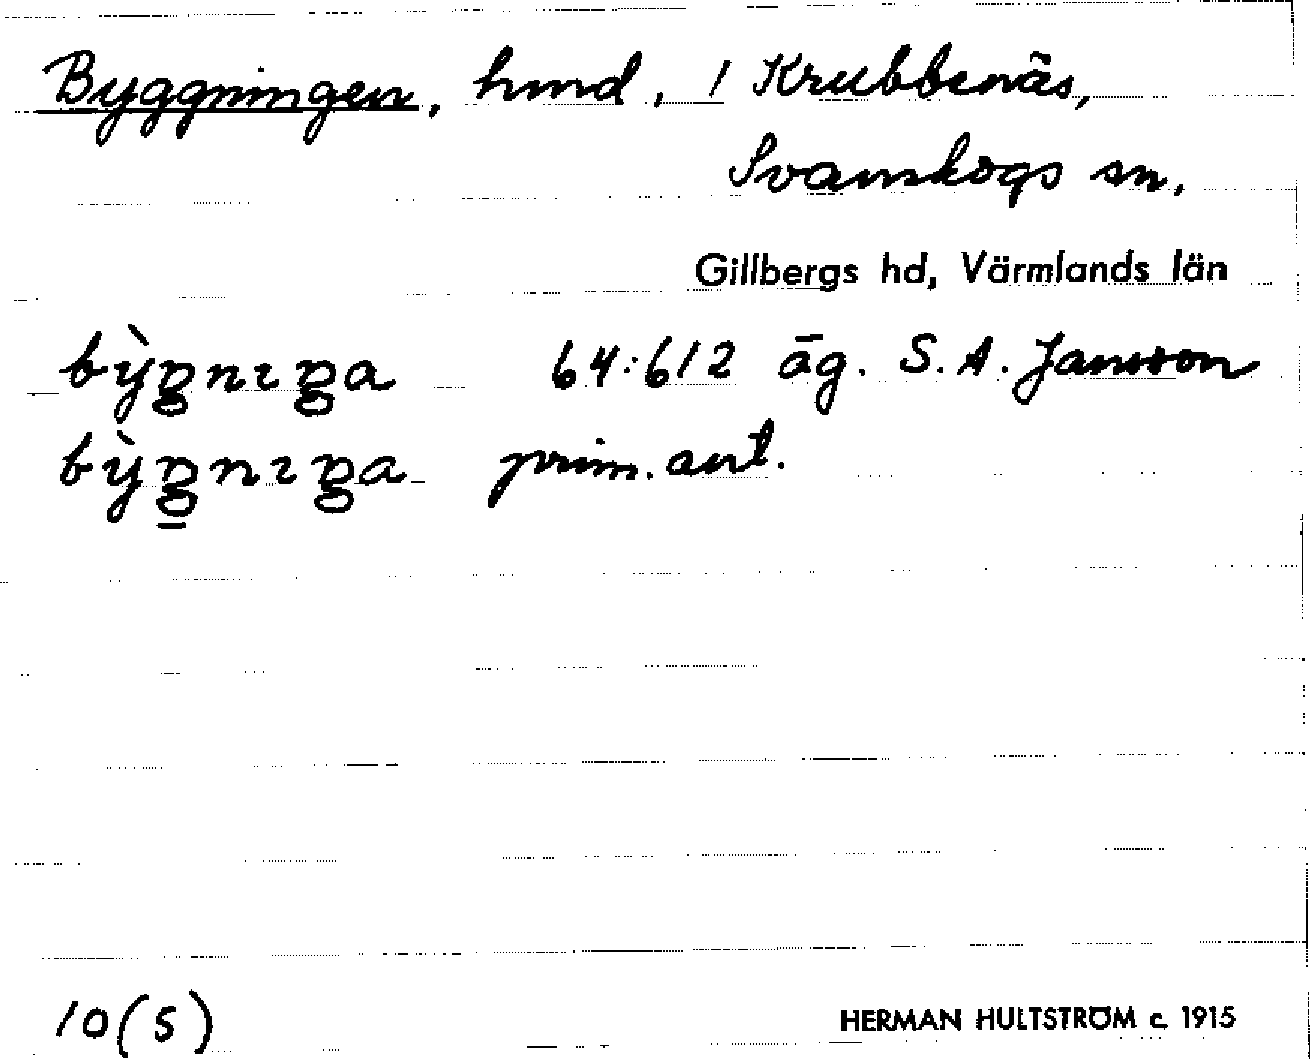 Byggningen, hmd, 1 Krubbenäs,
Svanskogs sn,
Gillbergs hd, Värmlands län
64:612 äg. S. A. Jansson
prim. ant.
10(5)
HERMAN HULTSTRÖM c. 1915